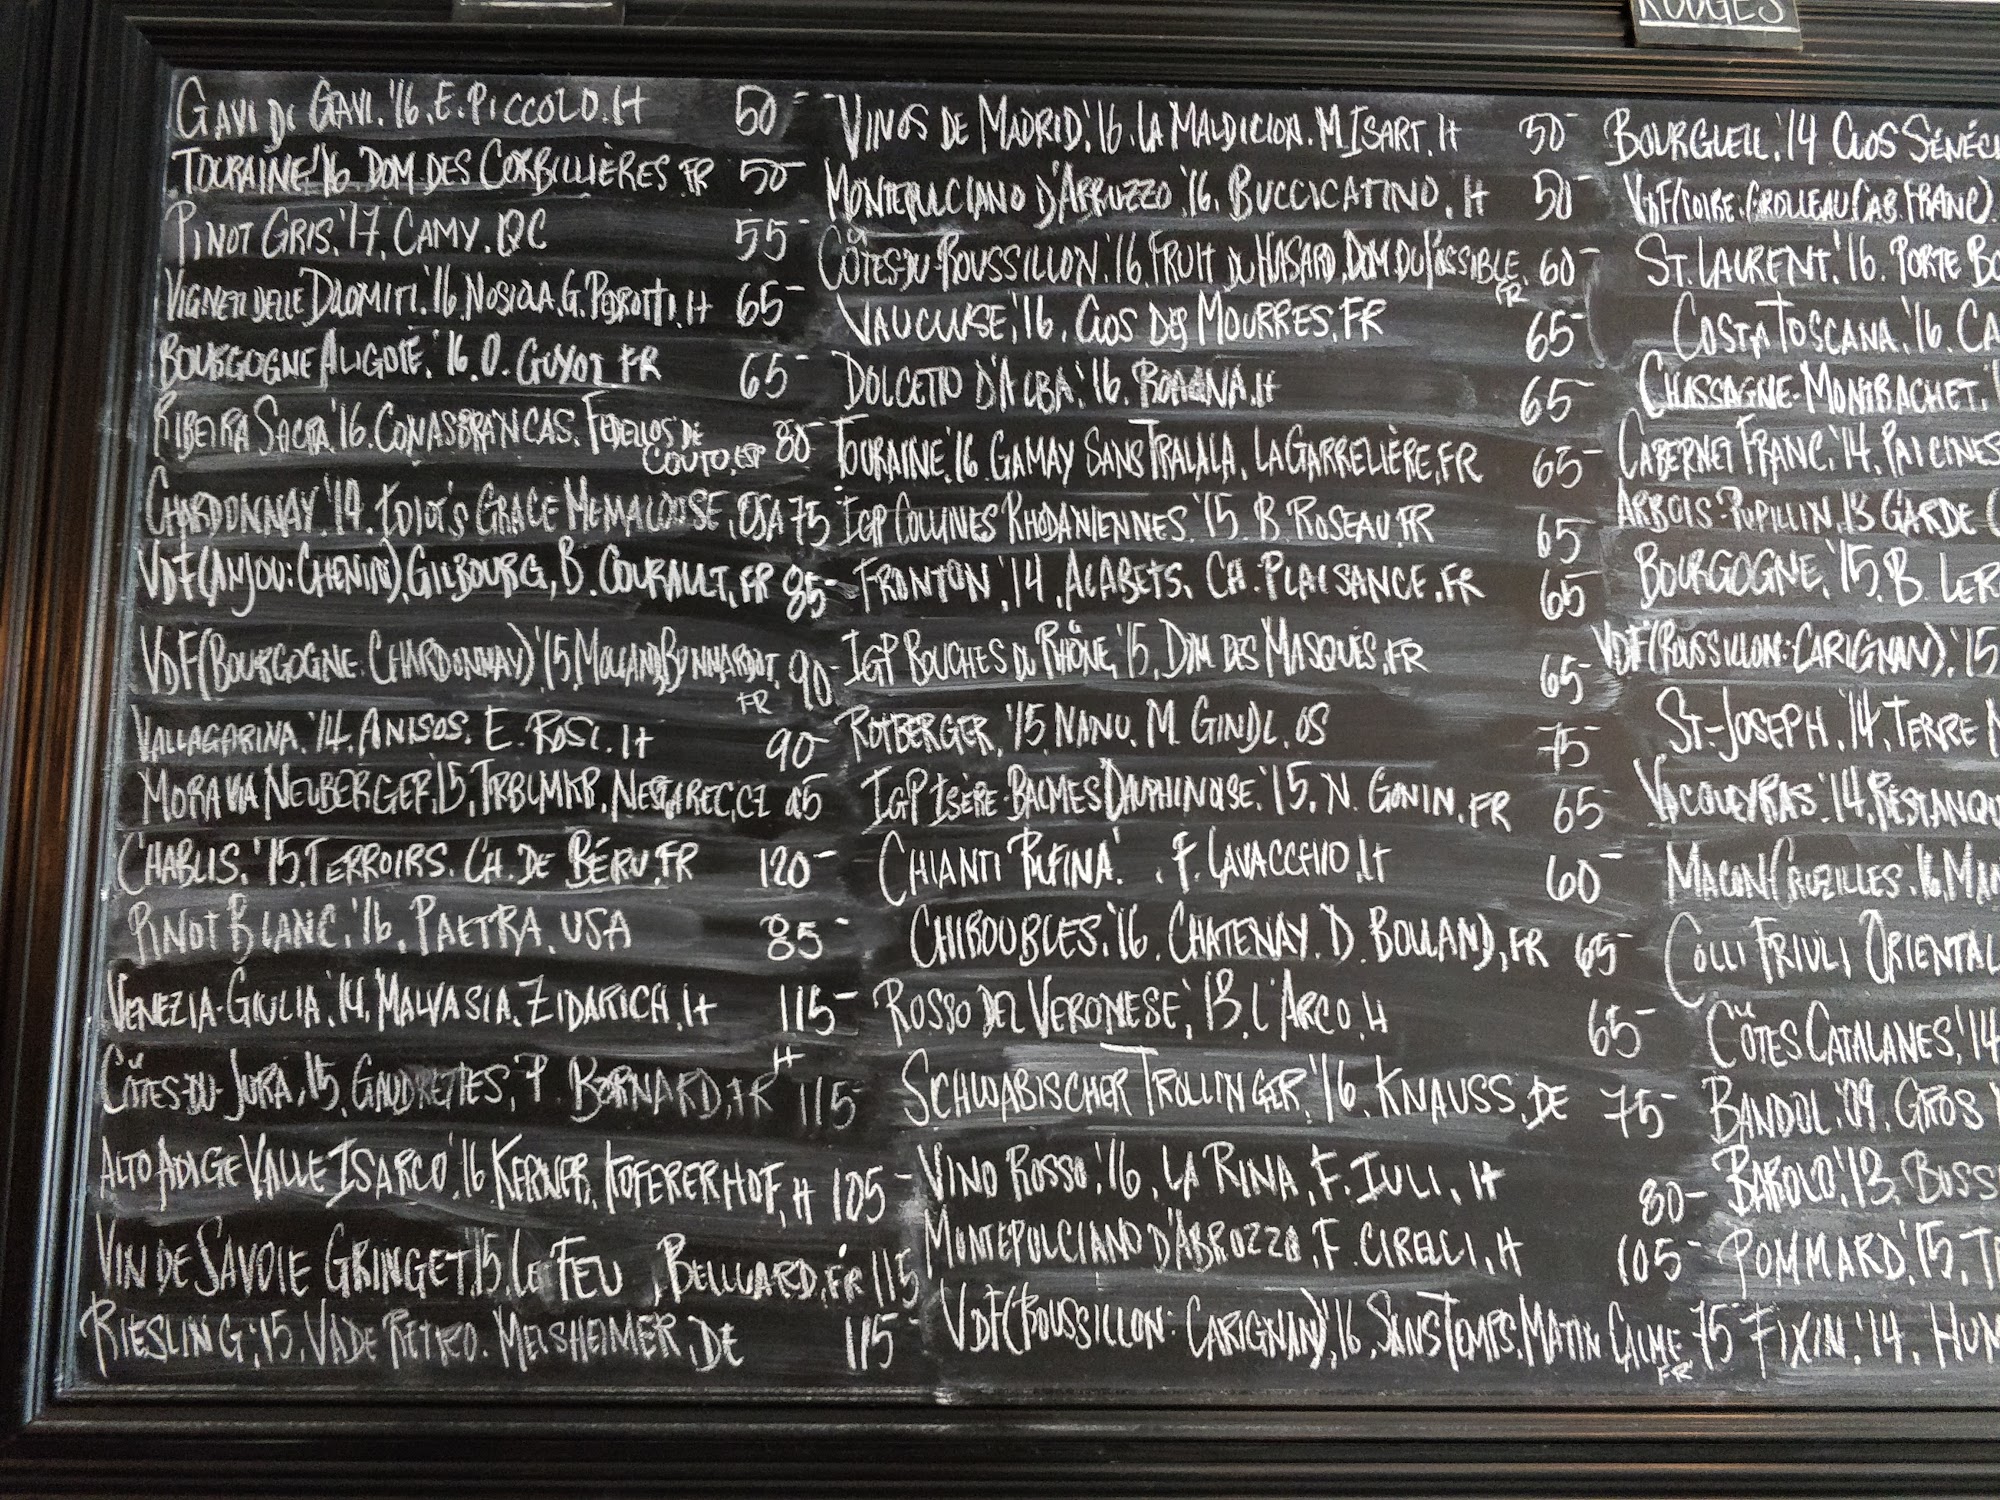 ROUGES
GAVI DI GAVI. '16. E. PICCOLO. It 50-
TOURAINE. '16. DOM DES CORBILLIÈRES FR 50-
PINOT GRIS. '17. CAMY. QC 55-
VIGNETI DELLE DOLOMITI. '16 NOSIOLA. G. PEDROTTI. It 65-
BOURGOGNE ALIGOTE. '16. O. GUYOT FR 65-
RIBEIRA SACRA '16. CONASBRANCAS. FEDELLOS DE
COUTO, ESP 80-
CHARDONNAY '14. IDIOT'S GRACE MEMALOOSE, USA 75-
VDF (ANJOU: CHENIN), GILBOURG, B. COURAULT, FR 85-
VDF (BOURGOGNE. CHARDONNAY) '15. MOLLAND BONNARDOT,
FR 90-
VALLAGARINA. '14. ANISOS. E. ROSI. It 90-
MORAVIA NEUBERGER, '15, TRBLMKR, NESTAREC, CZ
CHABLIS. '15. TERROIRS. CH. DE BÉRU, FR 120-
PINOT BLANC. '16. PAETRA, USA 85-
VENEZIA-GIULIA. '14. MALVASIA. ZIDARICH, It 115-
It
CÔTES-DU-JURA, '15. GAUDRETTES, P. BORNARD, FR 115-
ALTO ADIGE VALLE ISARCO, '16 KERNER. KOFERERHOF, It 105-
VIN DE SAVOIE GRINGET, '15. LE FEU. BELLUARD, FR 115
RIESLING, '15, VADE RETRO. MELSHEIMER, DE 115-
VINOS DE MADRID. '16. LA MALDICION. M. ISART. It 50-
MONTEPULCIANO D'ABRUZZO '16. BUCCICATINO. It 50-
CÔTES-DU-ROUSSILLON. '16. FRUIT DU HASARD, DOM. DU POSSIBLE, 60-
FR
VAUCLUSE, '16, CLOS DES MOURRES, FR 65-
DOLCETTO D'ALBA. '16. ROMANA, It 65-
TOURAINE. '16 GAMAY SANS TRALALA. LA GARRELIÈRE, FR 65-
IGP COLLINES RHODANIENNES '15. B. ROSEAU, FR 65-
FRONTON, '14. ALABETS. CH. PLAISANCE. FR 65-
IGP BOUCHES DU RHÔNE, '15, DOM. DES MASQUES, FR 65-
ROTBERGER, '15 NANU. M. GINDL. ÖS 75-
IGP ISÈRE-BALMES DAUPHINOISE. '15. N. GONIN, FR 65-
CHIANTI RUFINA'. F. LAVACCHIO. It 60-
CHIROUBLES. '16. CHATENAY. D. BOULAND, FR 65-
ROSSO DEL VERONESE, '13. L'ARCO. It 65-
SCHWABISCHER TROLLINGER. '16. KNAUSS, DE 75-
VINO ROSSO '16. LA RINA. F. IULI, It 80-
MONTEPULCIANO D'ABROZZO. F. CIRELLI, It 105-
VDF (ROUSSILLON: CARIGNAN) '16. SANS TEMPS, MATIN CALME 75-
FR
BOURGUEIL. '14 CLOS SÉNÉC
VDF (LOIRE. GROLLEAU CAB. FRANC).
ST. LAURENT. '16. PORTE BO
COSTA TOSCANA. '16. CA
CHASSAGNE-MONTRACHET. '1
CABERNET FRANC. '14. PAICINES
ARBOIS-PUPILLIN, '13 GARDE C
BOURGOGNE, '15. B. LER
VDF (ROUSSILLON: CARIGNAN), '15
ST-JOSEPH. '14. TERRE N
VACQUEYRAS. '14. RESTANQU
MACON CRUZILLES. '16. MAN
COLLI FRIULI ORIENTAL
CÔTES CATALANES, '14
BANDOL. '09. GROS
BAROLO '13. BOSS
POMMARD. '15. T
FIXIN '14. HUM